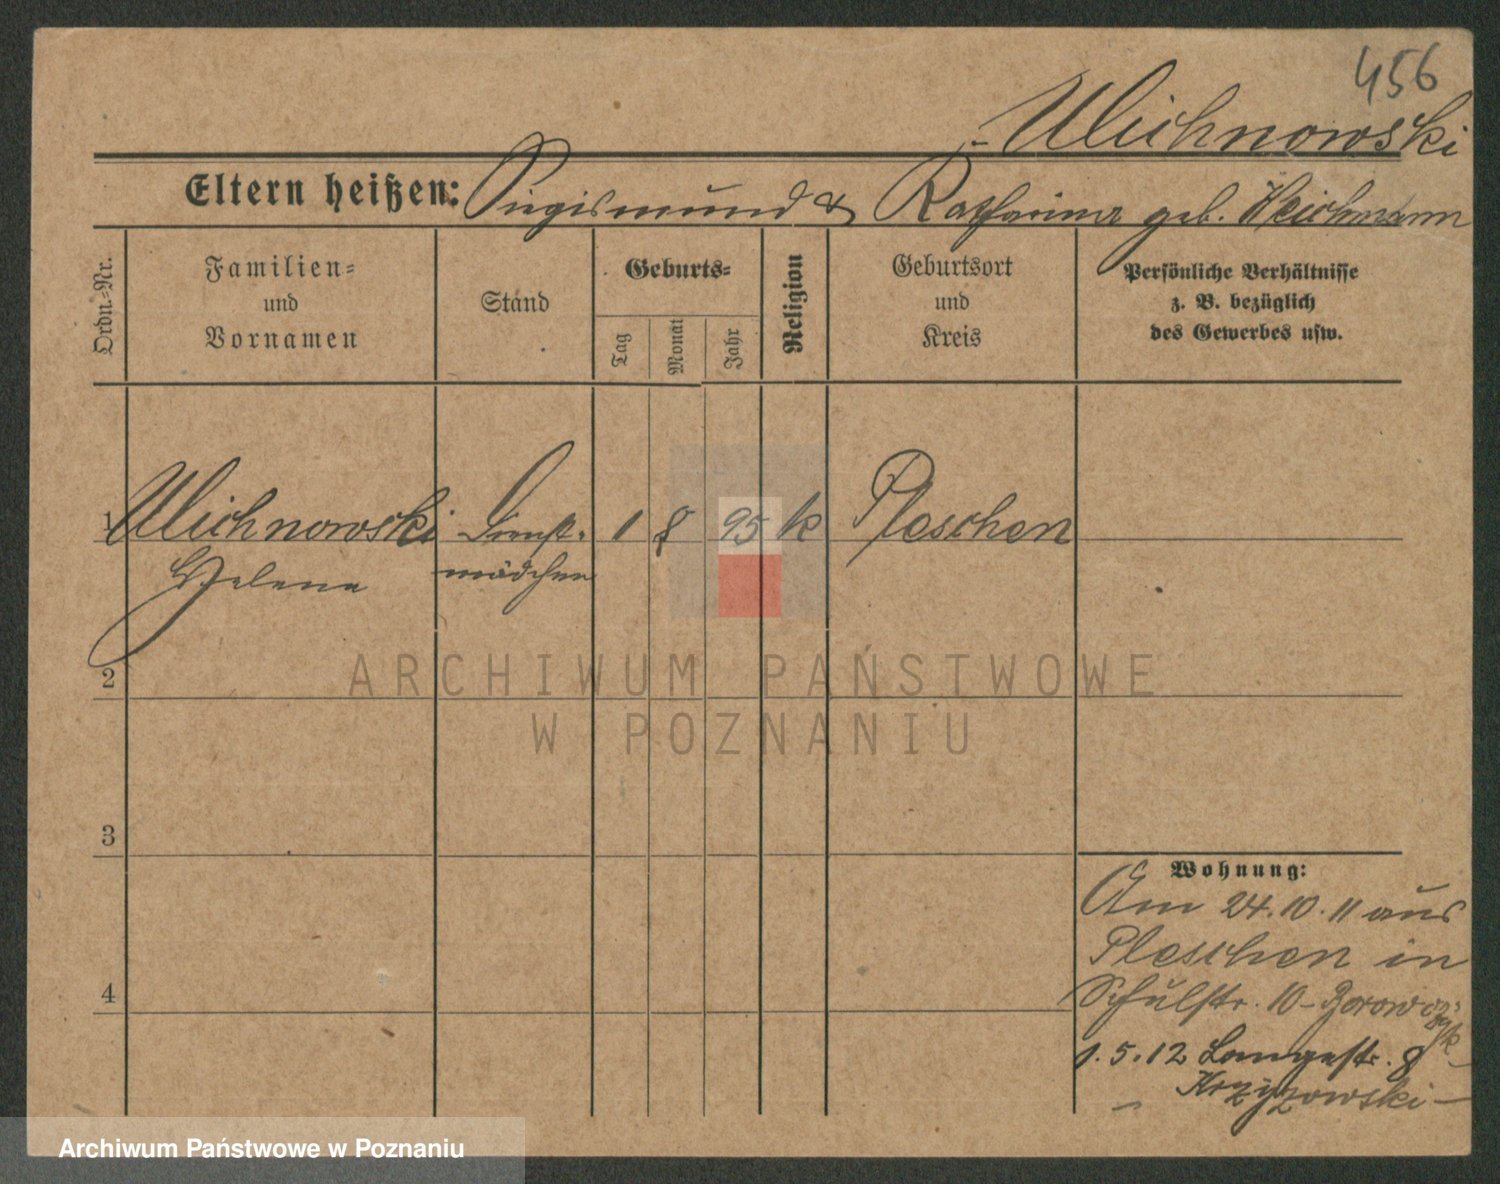 456
Ulichnowski
Eltern heißen: Siegismund & Katharina geb. Heichmann
Ordn.-Nr.
Familien-
und
Vornamen
Stand
Geburts-
Tag
Monat
Jahr
Religion
Geburtsort
und
Kreis
Persönliche Verhältnisse
z. B. bezüglich
des Gewerbes usw.
1 Ulichnowski Dienst- 1 8 95 k Pleschen
Helena mädchen
2
3
4
Wohnung:
Am 24.10.11 aus
Pleschen in
Schulstr. 10-
1.5.12 Langestr. 8
Krzyzowski-
ARCHIWUM PAŃSTWOWE
W POZNANIU
Archiwum Państwowe w Poznaniu